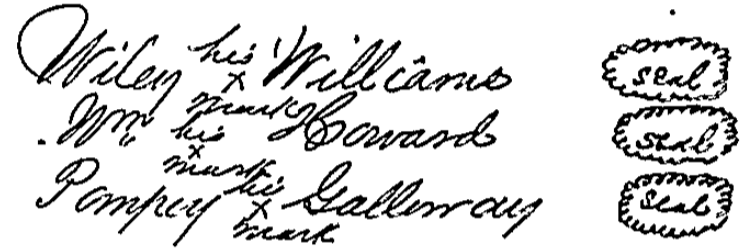 Wiley his x mark Williams seal
Wm his x mark Howard seal
Pompey his x mark Galloway seal